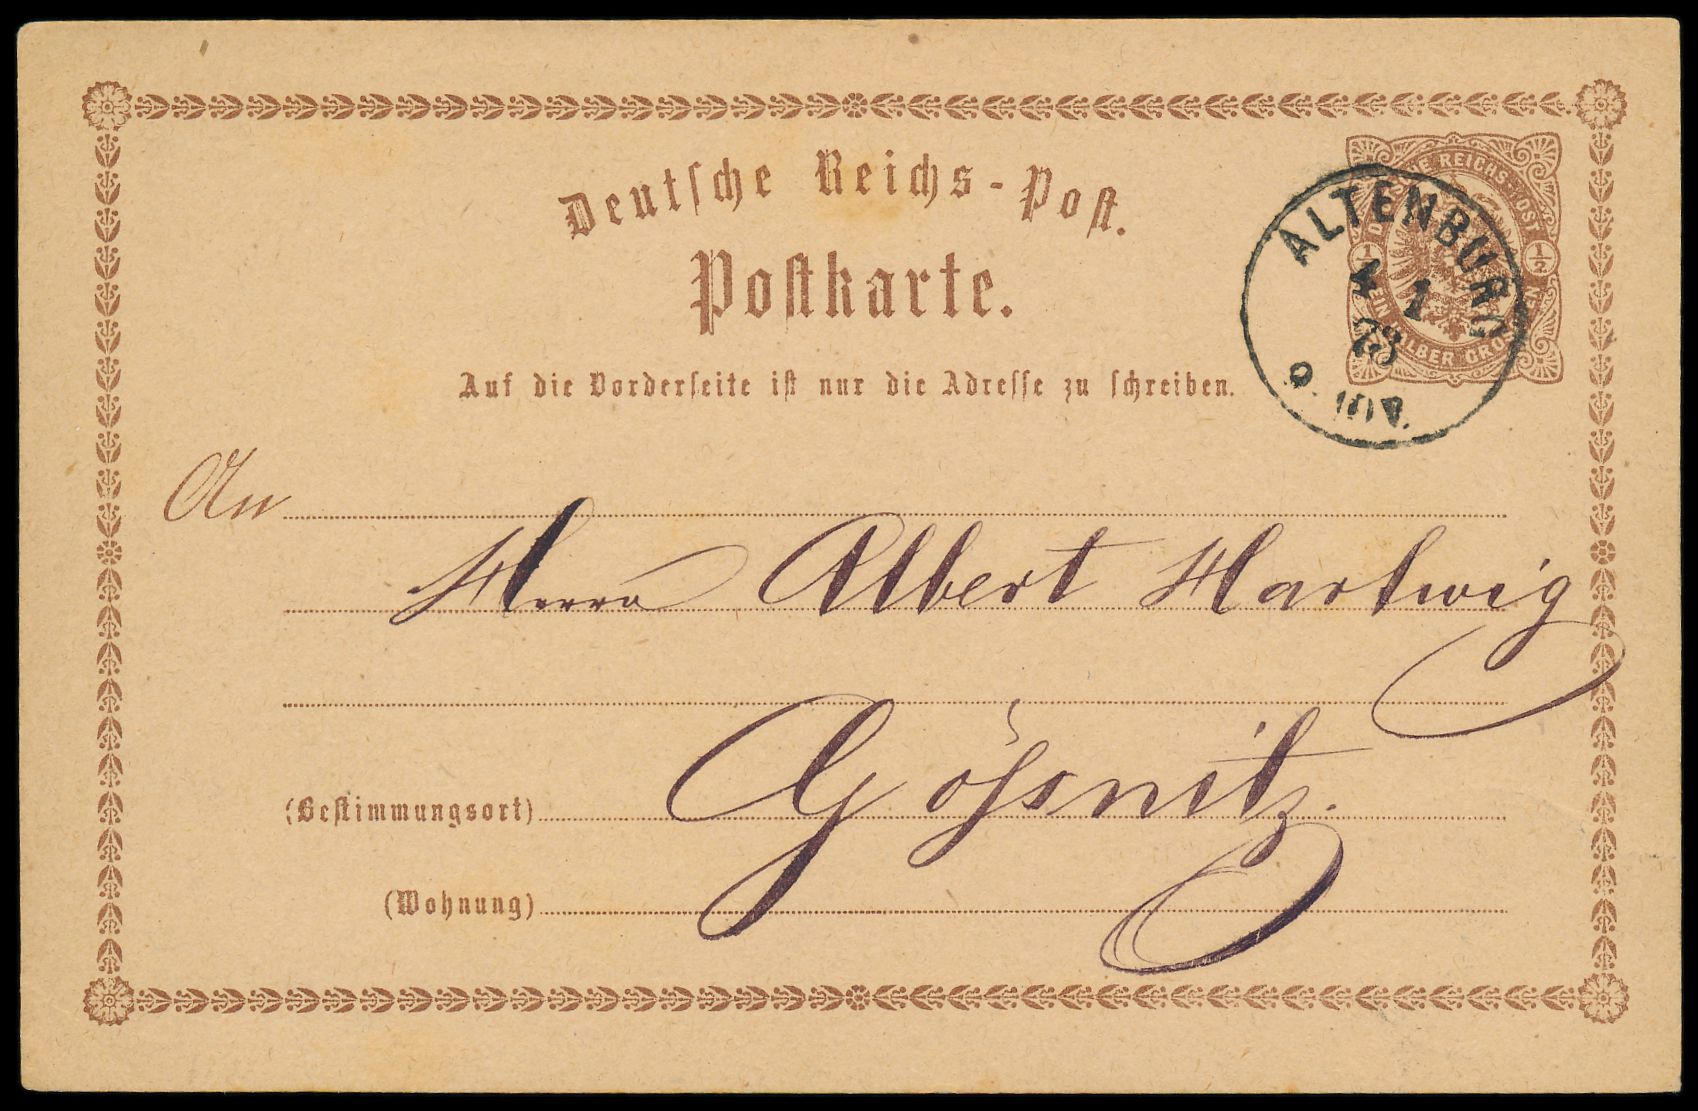 Deutsche Reichs-Post.
Postkarte.
Auf die Vorderseite ist nur die Adresse zu schreiben.
EIN HALBER GROSCHEN
½ ½
ALTENBURG
4 1
73
9. 10 V.
An
Herrn Albert Hartwig
Gössnitz.
(Bestimmungsort)
(Wohnung)